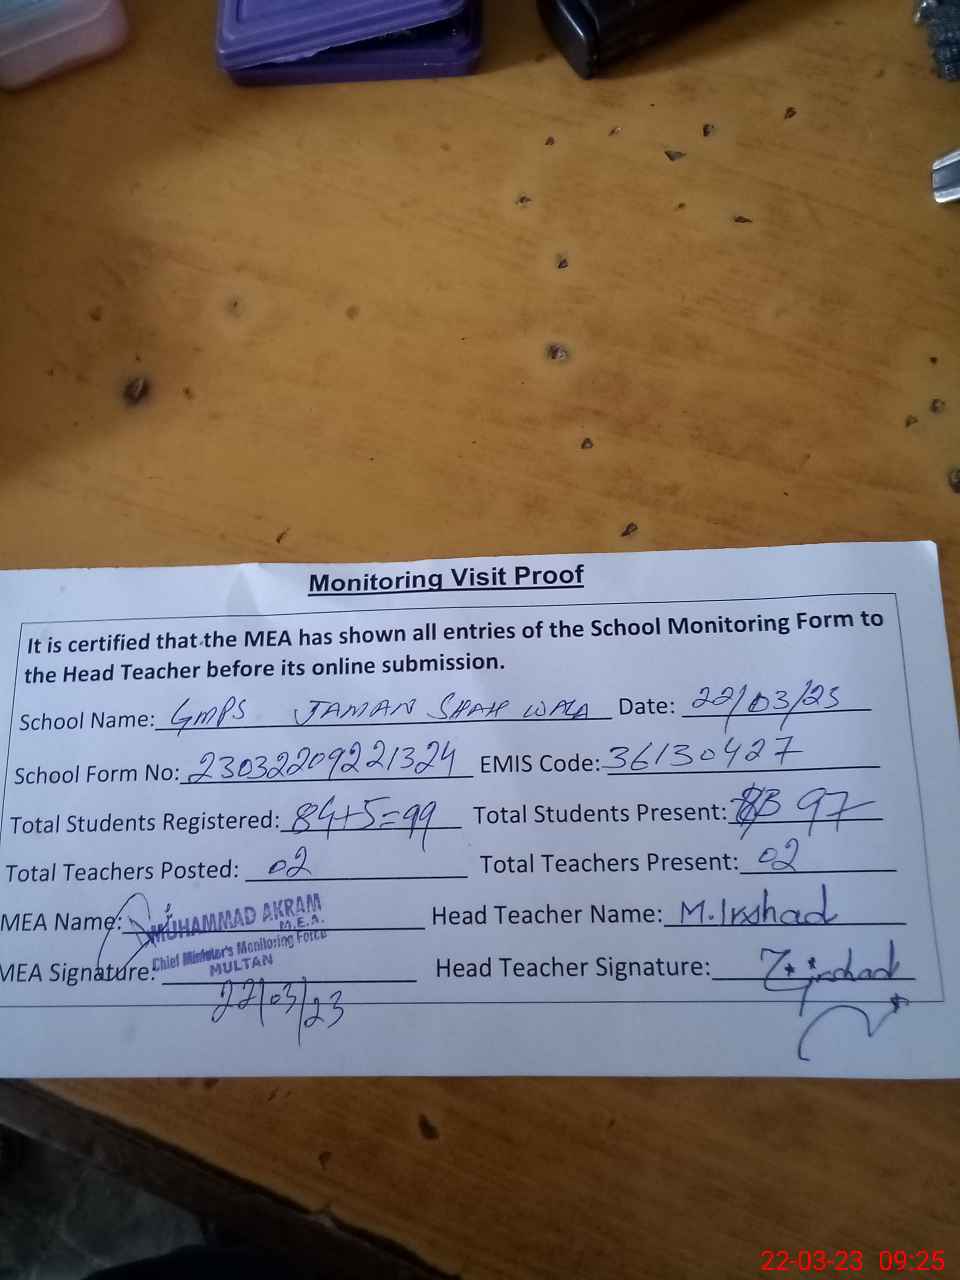 Monitoring Visit Proof
It is certified that the MEA has shown all entries of the School Monitoring Form to
the Head Teacher before its online submission.
School Name: GMPS JAMAN SHAH WALA Date: 22/03/23
School Form No: 23032209221324 EMIS Code: 36130427
Total Students Registered: 84+5=99 Total Students Present: 97
Total Teachers Posted: 02 Total Teachers Present: 02
MEA Name: MUHAMMAD AKRAM Head Teacher Name: M.Irshad
M.E.A.
Chief Minister's Monitoring Force
MEA Signature: MULTAN Head Teacher Signature:
22/03/23
22-03-23 09:25